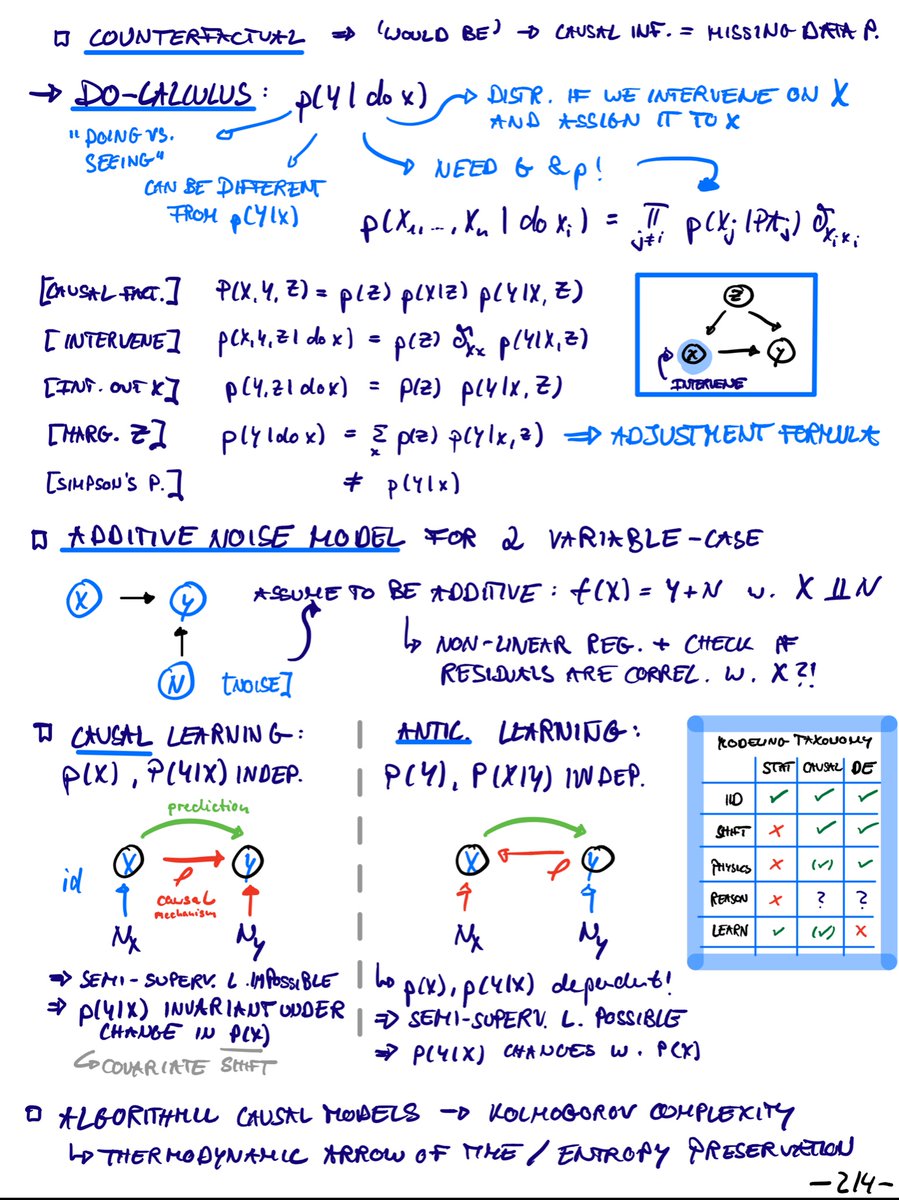 □ COUNTERFACTUAL ⇒ (WOULD BE) → CAUSAL INF. = MISSING DATA P.
→ DO-CALCULUS: p(Y | do x) → DISTR. IF WE INTERVENE ON X
AND ASSIGN IT TO X
"DOING VS.
SEEING"
CAN BE DIFFERENT
FROM p(Y|X)
NEED G & p!
p(X₁, ..., Xₙ | do xᵢ) = ∏_{j≠i} p(Xⱼ | PAⱼ) δ_{Xᵢxᵢ}
[CAUSAL FACT.] P(X, Y, Z) = p(Z) p(X|Z) p(Y|X, Z)
[INTERVENE] p(X, Y, Z | do x) = p(Z) δ_{Xx} p(Y|X, Z)
[INT. OUT X] p(Y, Z | do x) = p(Z) p(Y|X, Z)
[MARG. Z] p(Y | do x) = Σ_x p(z) p(Y|x, z) ⇒ ADJUSTMENT FORMULA
[SIMPSON'S P.] ≠ p(Y|x)
Z
X → Y
INTERVENE
□ ADDITIVE NOISE MODEL FOR 2 VARIABLE-CASE
X → Y
N [NOISE]
ASSUME TO BE ADDITIVE: f(X) = Y + N w. X ⫫ N
↳ NON-LINEAR REG. + CHECK IF
RESIDUALS ARE CORREL. W. X?!
□ CAUSAL LEARNING:
p(X), P(Y|X) INDEP.
prediction
id X Y
φ
causal
mechanism
N_X N_Y
⇒ SEMI-SUPERV. L. IMPOSSIBLE
⇒ p(Y|X) INVARIANT UNDER
CHANGE IN P(X)
↳ COVARIATE SHIFT
ANTIC. LEARNING:
P(Y), P(X|Y) INDEP.
X φ Y
N_X N_Y
↳ p(X), p(Y|X) dependent!
⇒ SEMI-SUPERV. L. POSSIBLE
⇒ P(Y|X) CHANGES W. P(X)
MODELING TAXONOMY
STAT CAUSAL DE
IID ✓ ✓ ✓
SHIFT × ✓ ✓
PHYSICS × (✓) ✓
REASON × ? ?
LEARN ✓ (✓) ×
□ ALGORITHMIC CAUSAL MODELS → KOLMOGOROV COMPLEXITY
↳ THERMODYNAMIC ARROW OF TIME / ENTROPY PRESERVATION
-2/4-